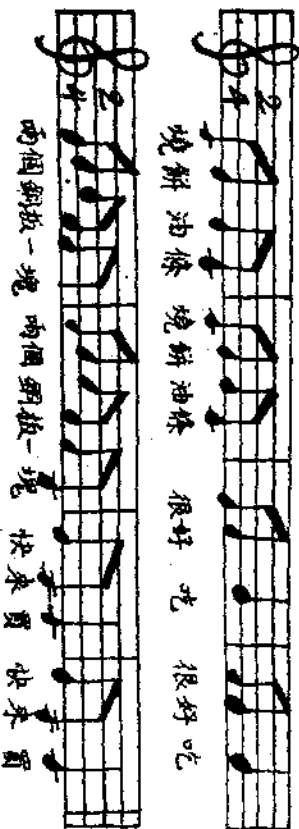 2
4
燒餅油條 燒餅油條 很好吃 很好吃
2
4
兩個銅板一塊 兩個銅板一塊 快來買 快來買